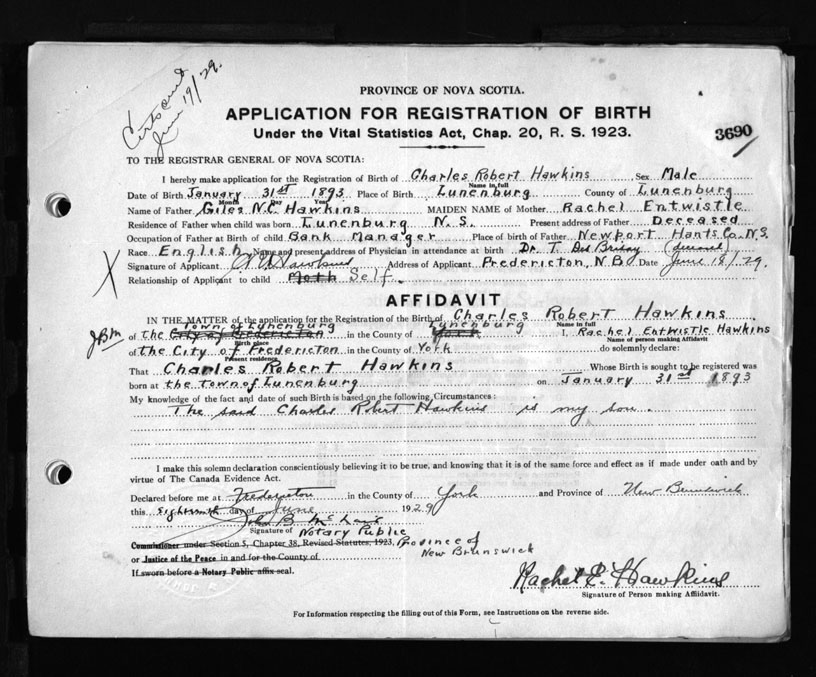 Cert sent
June 19/29.
PROVINCE OF NOVA SCOTIA.
APPLICATION FOR REGISTRATION OF BIRTH
Under the Vital Statistics Act, Chap. 20, R. S. 1923.
3690
TO THE REGISTRAR GENERAL OF NOVA SCOTIA:
I hereby make application for the Registration of Birth of Charles Robert Hawkins Sex Male
Name in full
Date of Birth January 31st 1893 Place of Birth Lunenburg County of Lunenburg
Month Day Year
Name of Father Giles N.C. Hawkins MAIDEN NAME of Mother Rachel Entwistle
Residence of Father when child was born Lunenburg N.S. Present address of Father Deceased
Occupation of Father at Birth of child Bank Manager Place of birth of Father Newport Hants Co. N.S.
Race English Name and present address of Physician in attendance at birth Dr. T. Des Brisay (deceased)
Signature of Applicant Hawkins Address of Applicant Fredericton, N.B. Date June 18/29.
Relationship of Applicant to child Moth Self.
AFFIDAVIT
IN THE MATTER of the application of the Registration of the Birth of Charles Robert Hawkins
Name in full
Town of Lunenburg Lunenburg
JBM of the City of Fredericton in the County of York I, Rachel Entwistle Hawkins
Birth place Name of person making Affidavit
of The City of Fredericton in the County of York do solemnly declare:
Present residence
That Charles Robert Hawkins Whose Birth is sought to be registered was
born at the town of Lunenburg on January 31st 1893
My knowledge of the fact and date of such Birth is based on the following Circumstances:
The said Charles Robert Hawkins is my son.
I make this solemn declaration conscientiously believing it to be true, and knowing that it is of the same force and effect as if made under oath and by
virtue of The Canada Evidence Act.
Declared before me at Fredericton in the County of York and Province of New Brunswick
this eighteenth day of June 1929
John B McNair
Signature of Notary Public
Commissioner under Section 5, Chapter 38, Revised Statutes, 1923, Province of
New Brunswick
or Justice of the Peace in and for the County of
If sworn before a Notary Public affix seal.
Rachel E. Hawkins
Signature of Person making Affidavit.
For Information respecting the filling out of this Form, see Instructions on the reverse side.